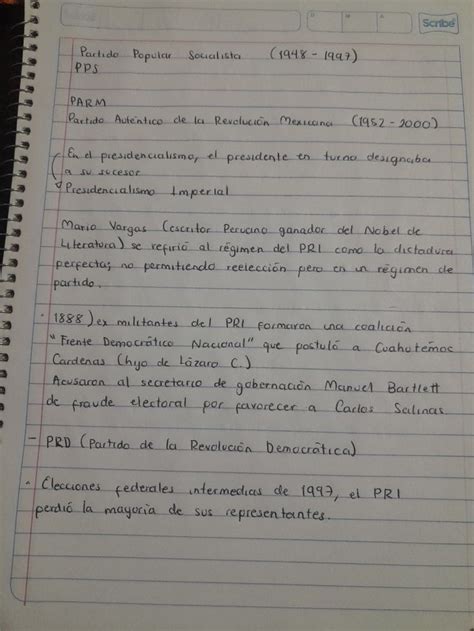 Scribe
Partido Popular Socialista (1948-1997)
PPS
PARM
Partido Auténtico de la Revolución Mexicana (1952-2000)
En el presidencialismo, el presidente en turno designaba
a su sucesor
Presidencialismo Imperial
Mario Vargas (escritor Peruano ganador del Nobel de
Literatura) se refirió al régimen del PRI como la dictadura
perfecta; no permitiendo reelección pero en un régimen de
partido.
· 1888) ex militantes del PRI formaron una coalición
"Frente Democrático Nacional" que postuló a Cuahutemoc
Cardenas (hijo de Lázaro C.)
Acusaron al secretario de gobernación Manuel Bartlett
de fraude electoral por favorecer a Carlos Salinas
- PRD (Partido de la Revolución Democrática)
- Elecciones federales intermedias de 1997, el PRI
perdió la mayoría de sus representantes.